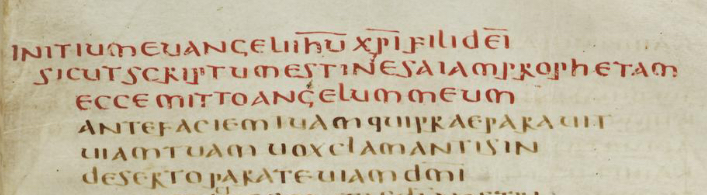 INITIUMEUANGELIIHU XPI FILIDEI
SICUTSCRIPTUMESTINESAIAMPROPHETAM
ECCEMITTOANGELUMMEUM
ANTEFACIEMTUAMQUIPRAEPARAUIT
UIAMTUAM UOXCLAMANTISIN
DESERTOPARATEUIAMDMI